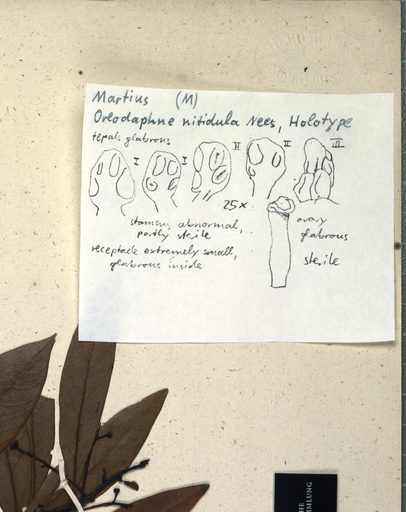 Martius (M)
Oreodaphne nitidula Nees, Holotype
tepals glabrous
I I II II III
25x
stamens abnormal,
partly sterile
ovary
glabrous
receptacle extremely small,
glabrous inside
sterile
HE
MMLUNG